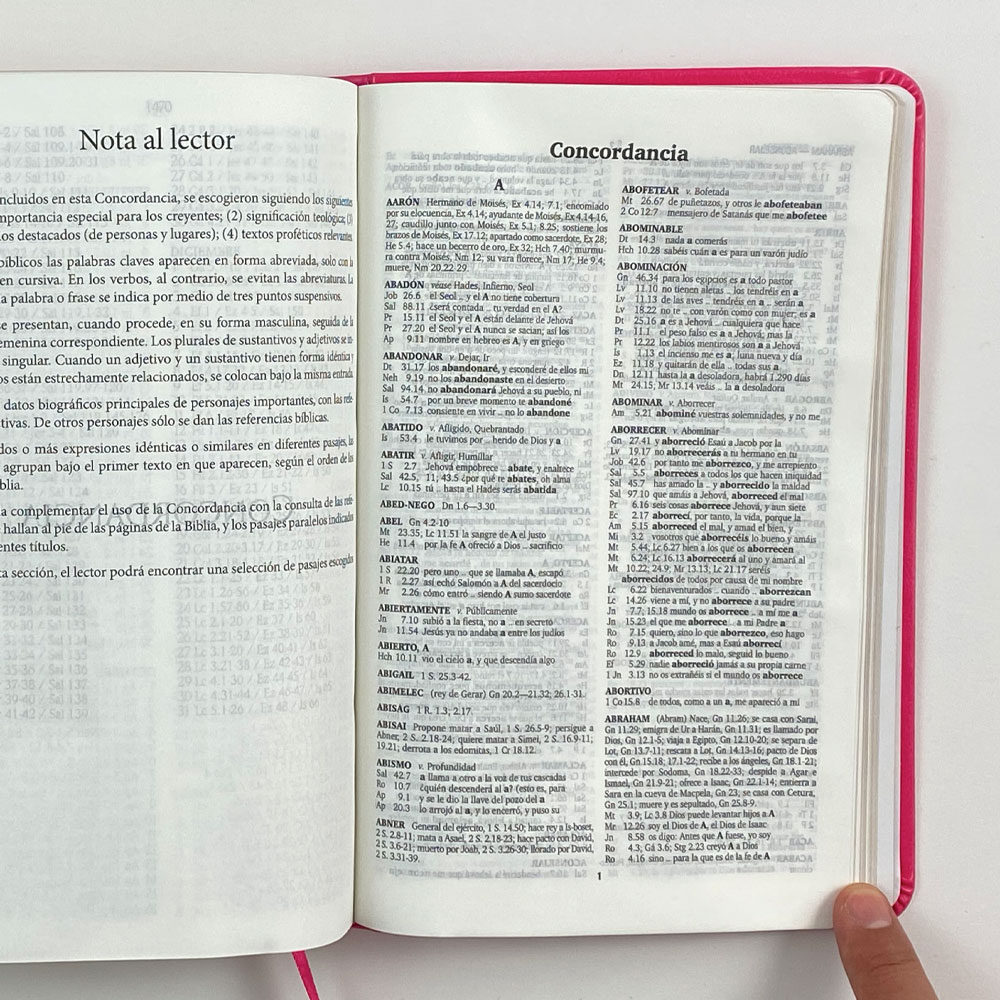 Nota al lector
ncluidos en esta Concordancia, se escogieron siguiendo los siguientes
mportancia especial para los creyentes; (2) significación teológica; (3)
os destacados (de personas y lugares); (4) textos proféticos relevantes.
bíblicos las palabras claves aparecen en forma abreviada, solo con la
en cursiva. En los verbos, al contrario, se evitan las abreviaturas. La
a palabra o frase se indica por medio de tres puntos suspensivos.
se presentan, cuando procede, en su forma masculina, seguida de la
emenina correspondiente. Los plurales de sustantivos y adjetivos se
singular. Cuando un adjetivo y un sustantivo tienen forma idéntica y
os están estrechamente relacionados, se colocan bajo la misma entrada.
datos biográficos principales de personajes importantes, con las
tivas. De otros personajes sólo se dan las referencias bíblicas.
dos o más expresiones idénticas o similares en diferentes pasajes, las
agrupan bajo el primer texto en que aparecen, según el orden de los
blia.
a complementar el uso de la Concordancia con la consulta de las
hallan al pie de las páginas de la Biblia, y los pasajes paralelos indicados
entes títulos.
ta sección, el lector podrá encontrar una selección de pasajes escogidos
Concordancia
A
AARÓN Hermano de Moisés, Ex 4.14; 7.1; encomiado
por su elocuencia, Ex 4.14; ayudante de Moisés, Ex 4.14-16,
27; caudillo junto con Moisés, Ex 5.1; 8.25; sostiene los
brazos de Moisés, Ex 17.12; apartado como sacerdote, Ex 28;
He 5.4; hace un becerro de oro, Ex 32; Hch 7.40; murmu-
ra contra Moisés, Nm 12; su vara florece, Nm 17; He 9.4;
muere, Nm 20.22-29.
ABADÓN véase Hades, Infierno, Seol
Job 26.6 el Seol ... y el A no tiene cobertura
Sal 88.11 ¿será contada ... tu verdad en el A?
Pr 15.11 el Seol y el A están delante de Jehová
Pr 27.20 el Seol y el A nunca se sacian; así los
Ap 9.11 nombre en hebreo es A, y en griego
ABANDONAR v. Dejar, Ir
Dt 31.17 los abandonaré, y esconderé de ellos mi
Neh 9.19 no los abandonaste en el desierto
Sal 94.14 no abandonará Jehová a su pueblo, ni
Is 54.7 por un breve momento te abandoné
1 Co 7.13 consiente en vivir ... no lo abandone
ABATIDO v. Afligido, Quebrantado
Is 53.4 le tuvimos por ... herido de Dios y a
ABATIR v. Afligir, Humillar
1 S 2.7 Jehová empobrece ... abate, y enaltece
Sal 42.5, 11; 43.5 ¿por qué te abates, oh alma
Lc 10.15 tú ... hasta el Hades serás abatida
ABED-NEGO Dn 1.6—3.30.
ABEL Gn 4.2-10
Mt 23.35; Lc 11.51 la sangre de A el justo
He 11.4 por la fe A ofreció a Dios ... sacrificio
ABIATAR
1 S 22.20 pero uno ... que se llamaba A, escapó
1 R 2.27 así echó Salomón a A del sacerdocio
Mr 2.26 cómo entró ... siendo A sumo sacerdote
ABIERTAMENTE v. Públicamente
Jn 7.10 subió a la fiesta, no a ... en secreto
Jn 11.54 Jesús ya no andaba a entre los judíos
ABIERTO, A
Hch 10.11 vio el cielo a, y que descendía algo
ABIGAIL 1 S 25.3-42.
ABIMELEC (rey de Gerar) Gn 20.2—21.32; 26.1-31.
ABISAG 1 R. 1.3; 2.17.
ABISAI Propone matar a Saúl, 1 S. 26.5-9; persigue a
Abner, 2 S. 2.18-24; quiere matar a Simei, 2 S. 16.9-11;
19.21; derrota a los edomitas, 1 Cr 18.12.
ABISMO v. Profundidad
Sal 42.7 a llama a otro a la voz de tus cascadas
Ro 10.7 ¿quién descenderá al a? (esto es, para
Ap 9.1 y se le dio la llave del pozo del a
Ap 20.3 lo arrojó al a, y lo encerró, y puso su
ABNER General del ejército, 1 S. 14.50; hace rey a Is-boset,
2 S. 2.8-11; mata a Asael, 2 S. 2.18-23; hace pacto con David,
2 S. 3.6-21; muerto por Joab, 2 S. 3.26-30; llorado por David,
2 S. 3.31-39.
ABOFETEAR v. Bofetada
Mt 26.67 de puñetazos, y otros le abofeteaban
2 Co 12.7 mensajero de Satanás que me abofetee
ABOMINABLE
Dt 14.3 nada a comerás
Hch 10.28 sabéis cuán a es para un varón judío
ABOMINACIÓN
Gn 46.34 para los egipcios es a todo pastor
Lv 11.10 no tienen aletas ... los tendréis en a
Lv 11.13 de las aves ... tendréis en a ... serán a
Lv 18.22 no te ... con varón como con mujer; es a
Dt 25.16 a es a Jehová ... cualquiera que hace
Pr 11.1 el peso falso es a a Jehová; mas la
Pr 12.22 los labios mentirosos son a a Jehová
Is 1.13 el incienso me es a; luna nueva y día
Ez 11.18 y quitarán de ella ... todas sus a
Dn 12.11 hasta la a desoladora, habrá 1.290 días
Mt 24.15; Mr 13.14 veáis ... la a desoladora
ABOMINAR v. Aborrecer
Am 5.21 abominé vuestras solemnidades, y no me
ABORRECER v. Abominar
Gn 27.41 y aborreció Esaú a Jacob por la
Lv 19.17 no aborrecerás a tu hermano en tu
Job 42.6 por tanto me aborrezco, y me arrepiento
Sal 5.5 aborreces a todos los que hacen iniquidad
Sal 45.7 has amado la ... y aborrecido la maldad
Sal 97.10 que amáis a Jehová, aborreced el mal
Pr 6.16 seis cosas aborrece Jehová, y aun siete
Ec 2.17 aborrecí, por tanto, la vida, porque la
Am 5.15 aborreced el mal, y amad el bien, y
Mi 3.2 vosotros que aborrecéis lo bueno y amáis
Mt 5.44; Lc 6.27 bien a los que os aborrecen
Mt 6.24; Lc 16.13 aborrecerá al uno y amará al
Mt 10.22; 24.9; Mr 13.13; Lc 21.17 seréis
aborrecidos de todos por causa de mi nombre
Lc 6.22 bienaventurados ... cuando ... aborrezcan
Lc 14.26 viene a mí, y no aborrece a su padre
Jn 7.7; 15.18 mundo os aborrece ... a mí me a
Jn 15.23 el que me aborrece ... a mi Padre a
Ro 7.15 quiero, sino lo que aborrezco, eso hago
Ro 9.13 a Jacob amé, mas a Esaú aborrecí
Ro 12.9 aborreced lo malo, seguid lo bueno
Ef 5.29 nadie aborreció jamás a su propia carne
1 Jn 3.13 no os extrañéis si el mundo os aborrece
ABORTIVO
1 Co 15.8 de todos, como a un a, me apareció a mí
ABRAHAM (Abram) Nace, Gn 11.26; se casa con Sarai,
Gn 11.29; emigra de Ur a Harán, Gn 11.31; es llamado por
Dios, Gn 12.1-5; viaja a Egipto, Gn 12.10-20; se separa de
Lot, Gn 13.7-11; rescata a Lot, Gn 14.13-16; pacto de Dios
con él, Gn 15.18; 17.1-22; recibe a los ángeles, Gn 18.1-21;
intercede por Sodoma, Gn 18.22-33; despide a Agar e
Ismael, Gn 21.9-21; ofrece a Isaac, Gn 22.1-14; entierra a
Sara en la cueva de Macpela, Gn 23; se casa con Cetura,
Gn 25.1; muere y es sepultado, Gn 25.8-9.
Mt 3.9; Lc 3.8 Dios puede levantar hijos a A
Mr 12.26 soy el Dios de A, el Dios de Isaac
Jn 8.58 os digo: Antes que A fuese, yo soy
Ro 4.3; Gá 3.6; Stg 2.23 creyó A a Dios
Ro 4.16 sino ... para la que es de la fe de A
1